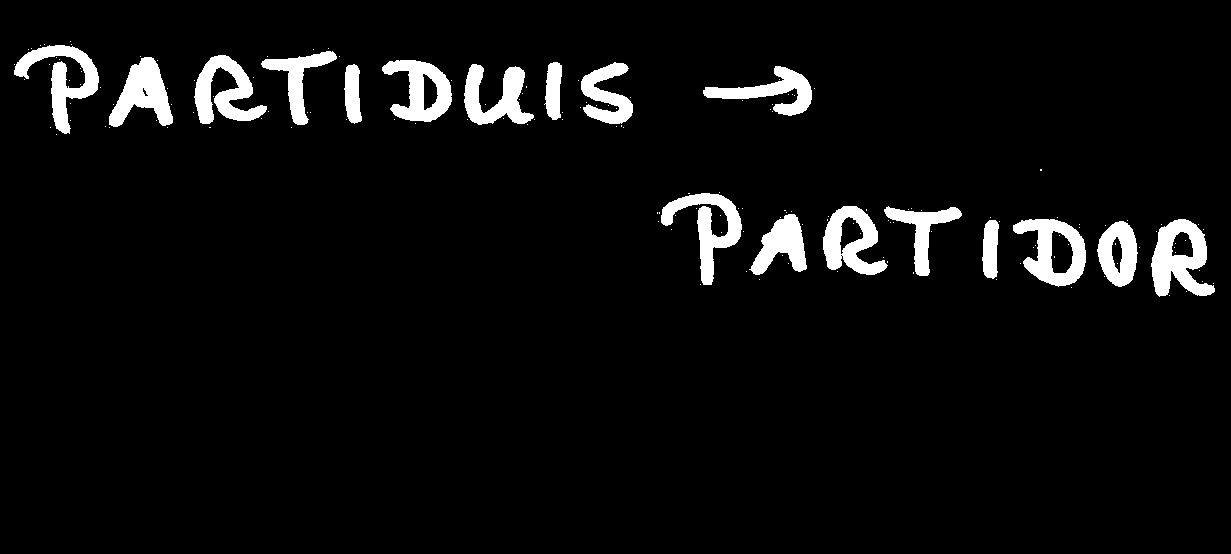 PARTIDUIS →
PARTIDOR